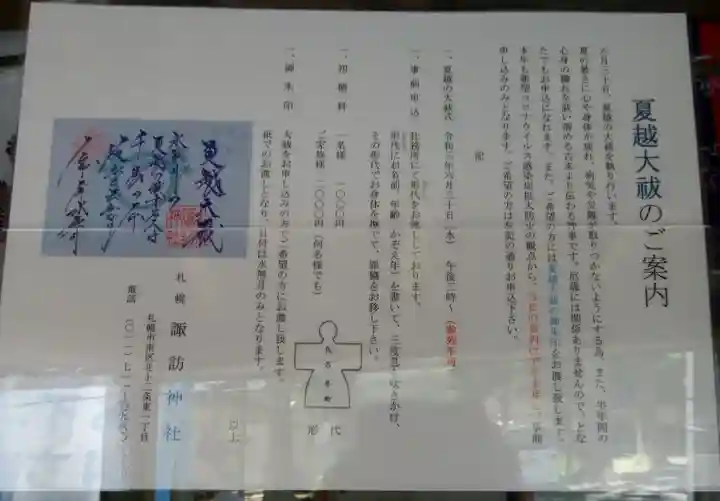 夏越大祓のご案内
六月三十日、夏越の大祓を執り行います。
夏の暑さに心や身体が疲れ、病気や災難が取りつかないようにする為、また、半年間の
心身の穢れを祓い清める古来より伝わる神事です。厄歳には関係ありませんので、どな
たでもお申込になれます。また、ご希望の方には夏越大祓の御朱印をお渡し致します。
本年も新型コロナウイルス感染症拡大防止の観点から、
申し込みのみとなります。ご希望の方は左記の通りお申込下さい。
記
一、夏越の大祓式 令和三年六月三十日(水) 午後三時〜(参列不可)
一、事前申込 社務所にて形代をお渡ししております。
形代にお名前、年齢(かぞえ年)を書いて、三度息を吹きかけ、
その形代でお身体を撫でて、罪穢をお移し下さい。
一、初穂料 一名様 一〇〇〇円
ご家族様 二〇〇〇円(何名様でも)
一、御朱印 大祓をお申し込みの方でご希望の方にお渡し致します。
紙でのお渡しとなり、日付は水無月のみとなります。
以上
形代
夏越大祓
札幌 諏訪神社
札幌市東区北十二条東一丁目
電話